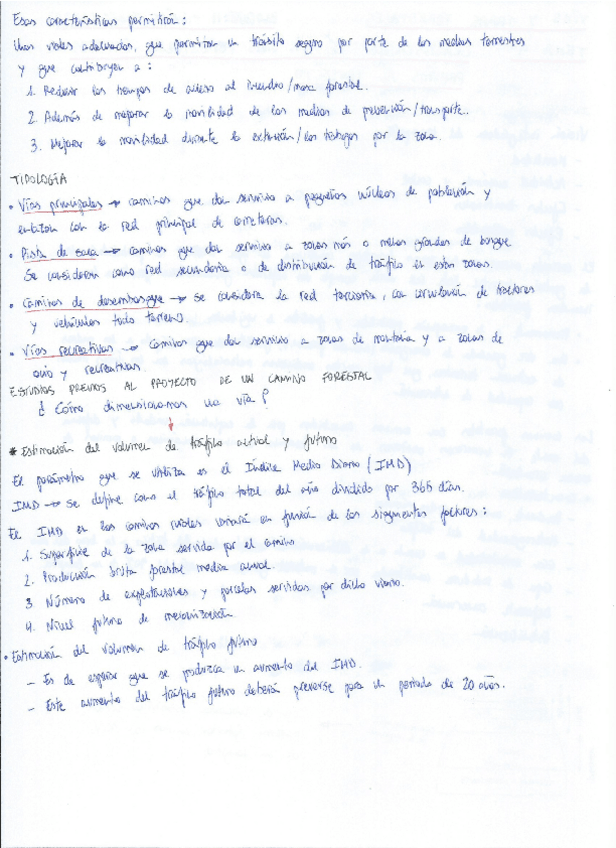 Esas características permitirán:
Unos viales adecuados, que permitan un tránsito seguro por parte de los medios terrestres
y que contribuyen a:
1. Reducir los tiempos de acceso al incendio/masa forestal.
2. Además de mejorar la movilidad de los medios de prevención/transporte.
3. Mejorar la movilidad durante la extinción/los trabajos por la zona.
TIPOLOGÍA
• Vías principales → caminos que dan servicio a pequeños núcleos de población y
enlazan con la red principal de carreteras.
• Pista de saca → caminos que dan servicio a zonas más o menos grandes de bosque.
Se consideran como red secundaria o de distribución de tráfico en estas zonas.
• Caminos de desembosque → se considera la red terciaria, con circulación de tractores
y vehículos todo terreno.
• Vías recreativas → caminos que dan servicio a zonas de montaña y a zonas de
ocio y recreativas.
ESTUDIOS PREVIOS AL PROYECTO DE UN CAMINO FORESTAL
¿Cómo dimensionamos una vía?
* Estimación del volumen de tráfico actual y futuro
El parámetro que se utiliza es el Índice Medio Diario (IMD)
IMD → se define como el tráfico total del año dividido por 365 días.
El IMD en los caminos rurales variará en función de los siguientes factores:
1. Superficie de la zona servida por el camino
2. Producción bruta forestal media anual.
3 Número de explotaciones y parcelas servidas por dicho
4. Nivel futuro de mecanización
• Estimación del volumen de tráfico futuro
- Es de esperar que se produzca un aumento del IMD.
- Este aumento del tráfico futuro deberá preverse para un periodo de 20 años.